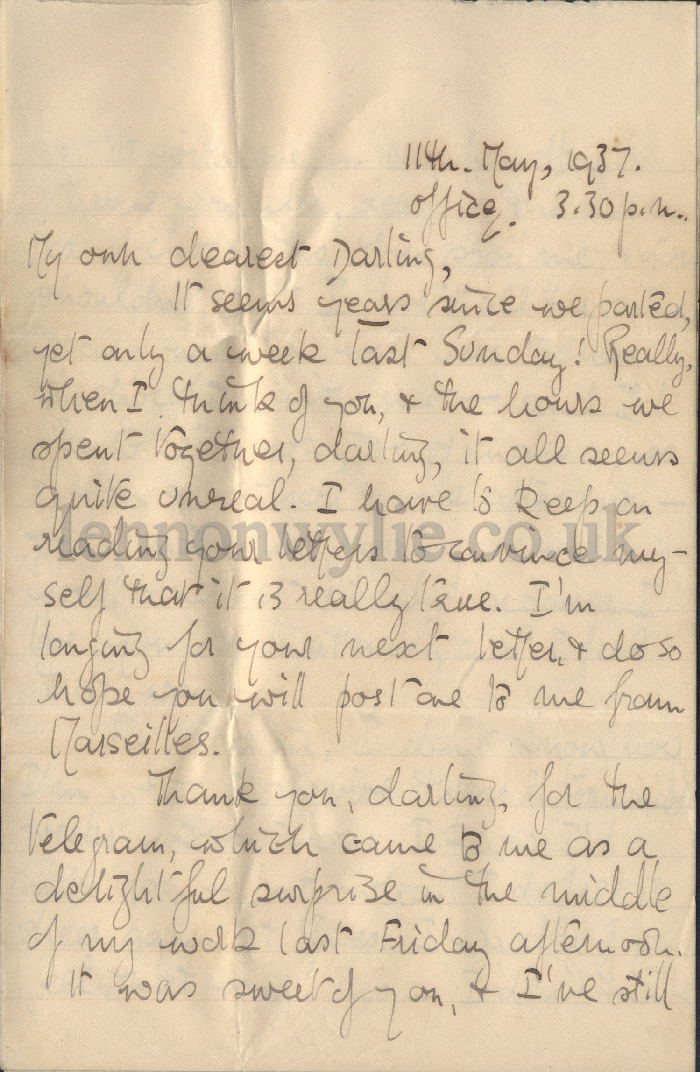 11th. May, 1937.
Office. 3.30 p.m.
My own dearest Darling,
It seems years since we parted,
yet only a week last Sunday! Really,
when I think of you, & the hours we
spent together, darling, it all seems
quite unreal. I have to keep on
lennonwylie.co.uk
reading your letters to convince my-
self that it is really true. I'm
longing for your next letter, & do so
hope you will post one to me from
Marseilles.
Thank you, darling, for the
telegram, which came to me as a
delightful surprise in the middle
of my work last Friday afternoon.
It was sweet of you, & I've still